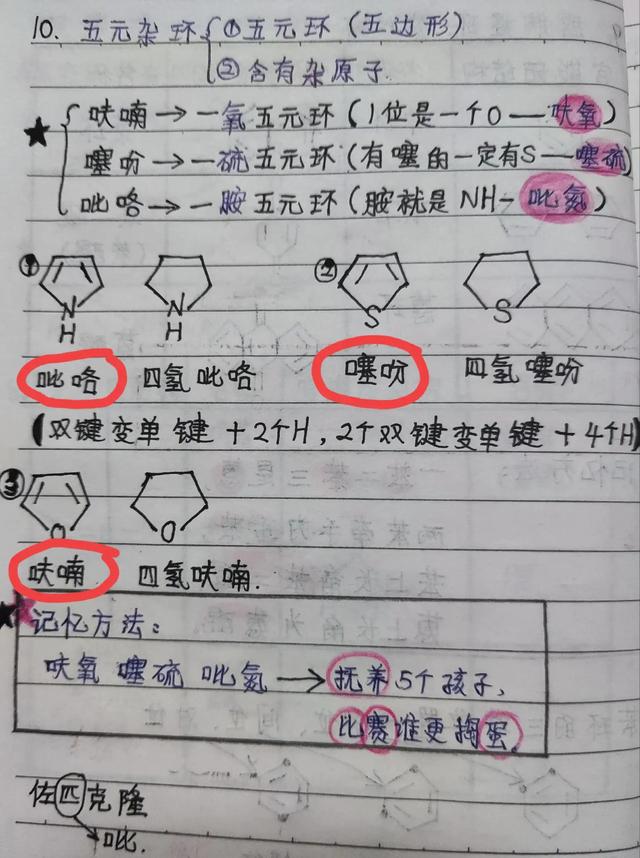 10. 五元杂环 ①五元环（五边形）
②含有杂原子.
★ 呋喃→一氧五元环（1位是一个O—呋氧）
噻吩→一硫五元环（有噻的一定有S—噻硫）
吡咯→一胺五元环（胺就是NH-吡氮）
① N H N H ② S S
吡咯 四氢吡咯 噻吩 四氢噻吩
(双键变单键+2个H,2个双键变单键+4个H)
③ O O
呋喃 四氢呋喃.
★ 记忆方法:
呋氧 噻硫 吡氮 → 抚养5个孩子,
比赛谁更捣蛋.
佐匹克隆
→吡.